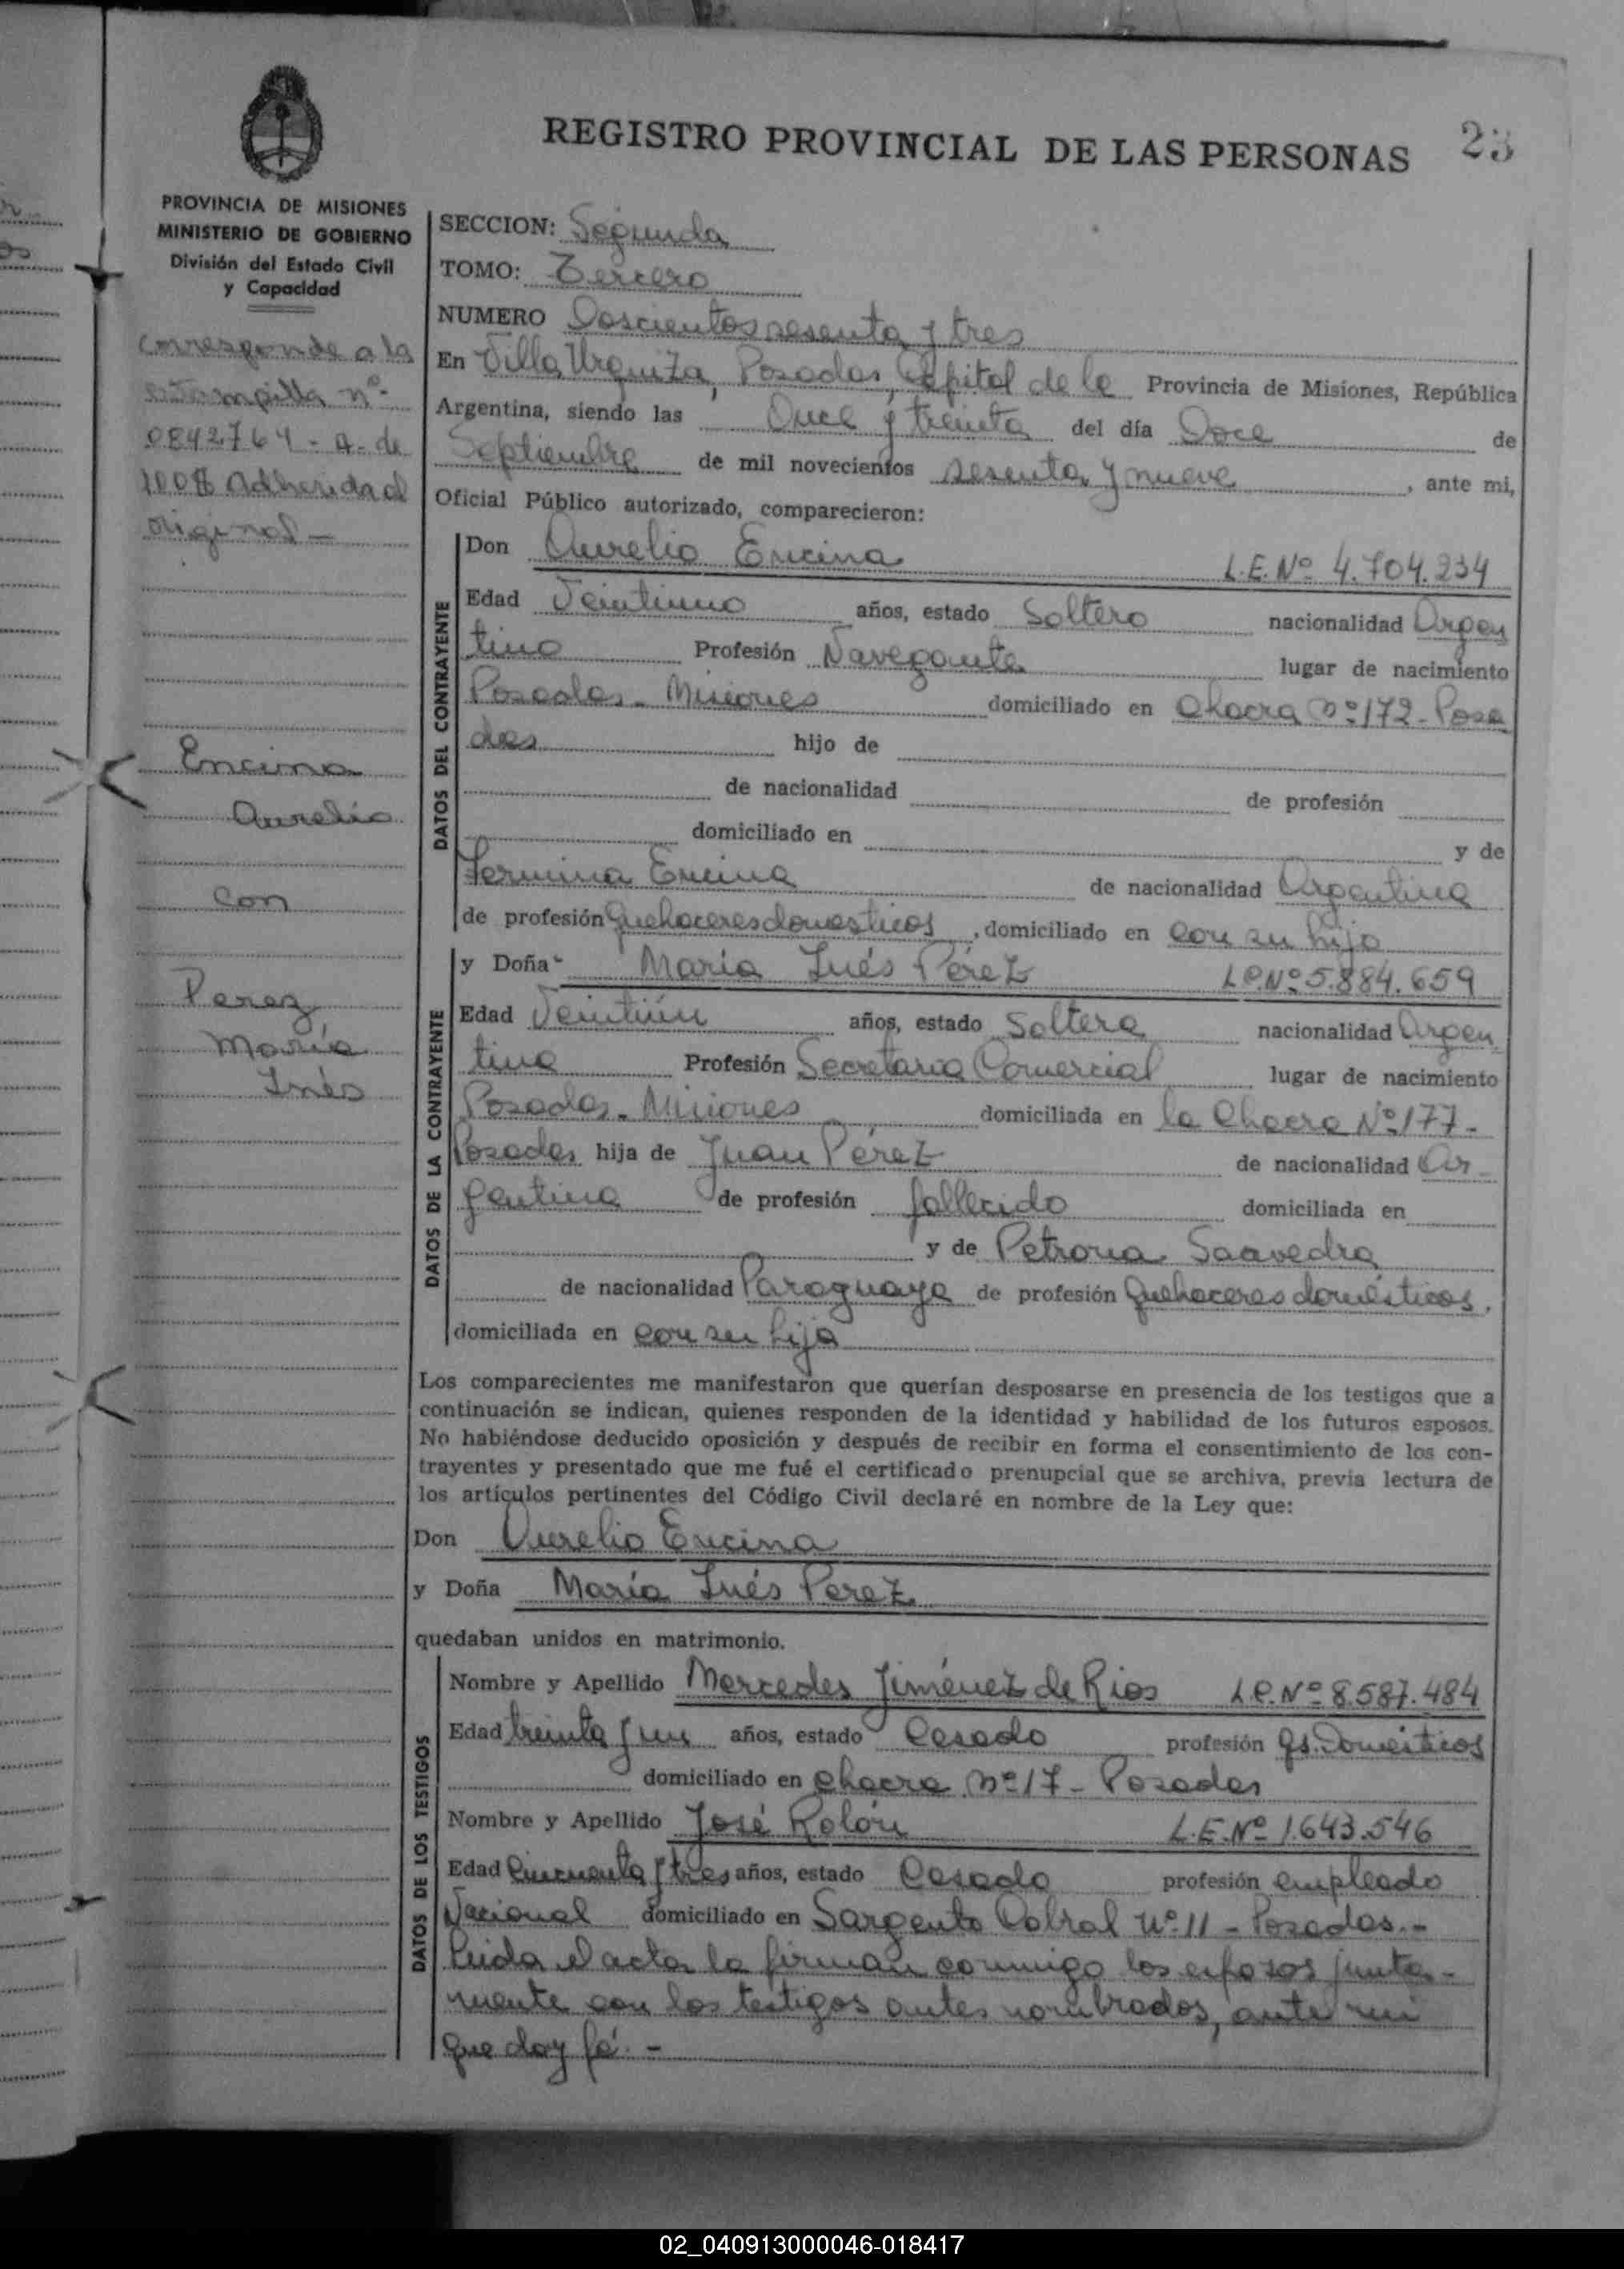 REGISTRO PROVINCIAL DE LAS PERSONAS 23
PROVINCIA DE MISIONES
MINISTERIO DE GOBIERNO
División del Estado Civil
y Capacidad
Corresponde a la
estampilla nº
0842764 - A - de
100$ Adherida al
original -
Encina
Aurelio
con
Perez
María
Inés
SECCION: Segunda
TOMO: Tercero
NUMERO Doscientos sesenta y tres
En Villa Urquiza, Posadas, Capital de la Provincia de Misiones, República
Argentina, siendo las Once y treinta del día Doce de
Septiembre de mil novecientos sesenta y nueve, ante mi,
Oficial Público autorizado, comparecieron:
DATOS DEL CONTRAYENTE
Don Aurelio Encina L.E. Nº 4.704.234
Edad Veintiuno años, estado Soltero nacionalidad Argen
tino Profesión Navegante lugar de nacimiento
Posadas - Misiones domiciliado en Chacra nº 172 - Posa
das hijo de
de nacionalidad de profesión
domiciliado en y de
Fermina Encina de nacionalidad Argentina
de profesión Quehaceres domesticos, domiciliado en con su hijo
DATOS DE LA CONTRAYENTE
y Doña María Inés Pérez L.C. Nº 5.884.659
Edad Veintiún años, estado Soltera nacionalidad Argen
tina Profesión Secretaria Comercial lugar de nacimiento
Posadas - Misiones domiciliada en la Chacra Nº 177 -
Posadas hija de Juan Pérez de nacionalidad Ar-
gentina de profesión fallecido domiciliada en
y de Petrona Saavedra
de nacionalidad Paraguaya de profesión Quehaceres domésticos,
domiciliada en con su hija
Los comparecientes me manifestaron que querían desposarse en presencia de los testigos que a
continuación se indican, quienes responden de la identidad y habilidad de los futuros esposos.
No habiéndose deducido oposición y después de recibir en forma el consentimiento de los con-
trayentes y presentado que me fué el certificado prenupcial que se archiva, previa lectura de
los artículos pertinentes del Código Civil declaré en nombre de la Ley que:
Don Aurelio Encina
y Doña María Inés Perez
quedaban unidos en matrimonio.
DATOS DE LOS TESTIGOS
Nombre y Apellido Mercedes Jiménez de Rios L.C. Nº 8.587.484
Edad treinta y un años, estado Casado profesión Qs. Domésticos
domiciliado en Chacra nº 17 - Posadas
Nombre y Apellido José Rolón L.E. Nº 1.643.546
Edad Cincuenta y tres años, estado Casado profesión empleado
Nacional domiciliado en Sargento Cabral nº 11 - Posadas.-
Leida el acta la firman conmigo los esposos junta-
mente con los testigos antes nombrados, ante mi
que doy fé. -
02_040913000046-018417